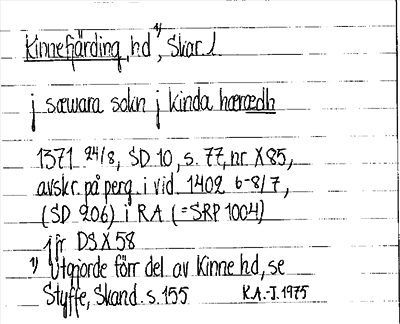 Kinnefjärding, hd 1), Skar. l
j sæwara sokn j kinda hærædh
1371 24/8, SD 10, s. 77, nr X 85,
avskr. på perg. i vid. 1402 6-8/7,
(SD 206) i RA (=SRP 1004)
jfr DS X 58
1) Utgjorde förr del av Kinne hd, se
Styffe, Skand. s. 155 K.A.-J. 1975